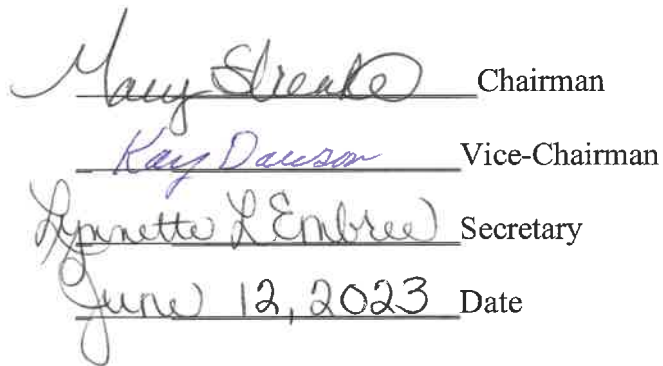 Mary Streake Chairman
Kay Dawson Vice-Chairman
Lynnette L Embree Secretary
June 12, 2023 Date